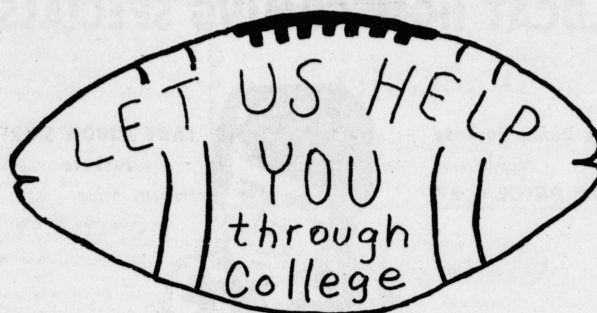 LET US HELP
YOU
through
College